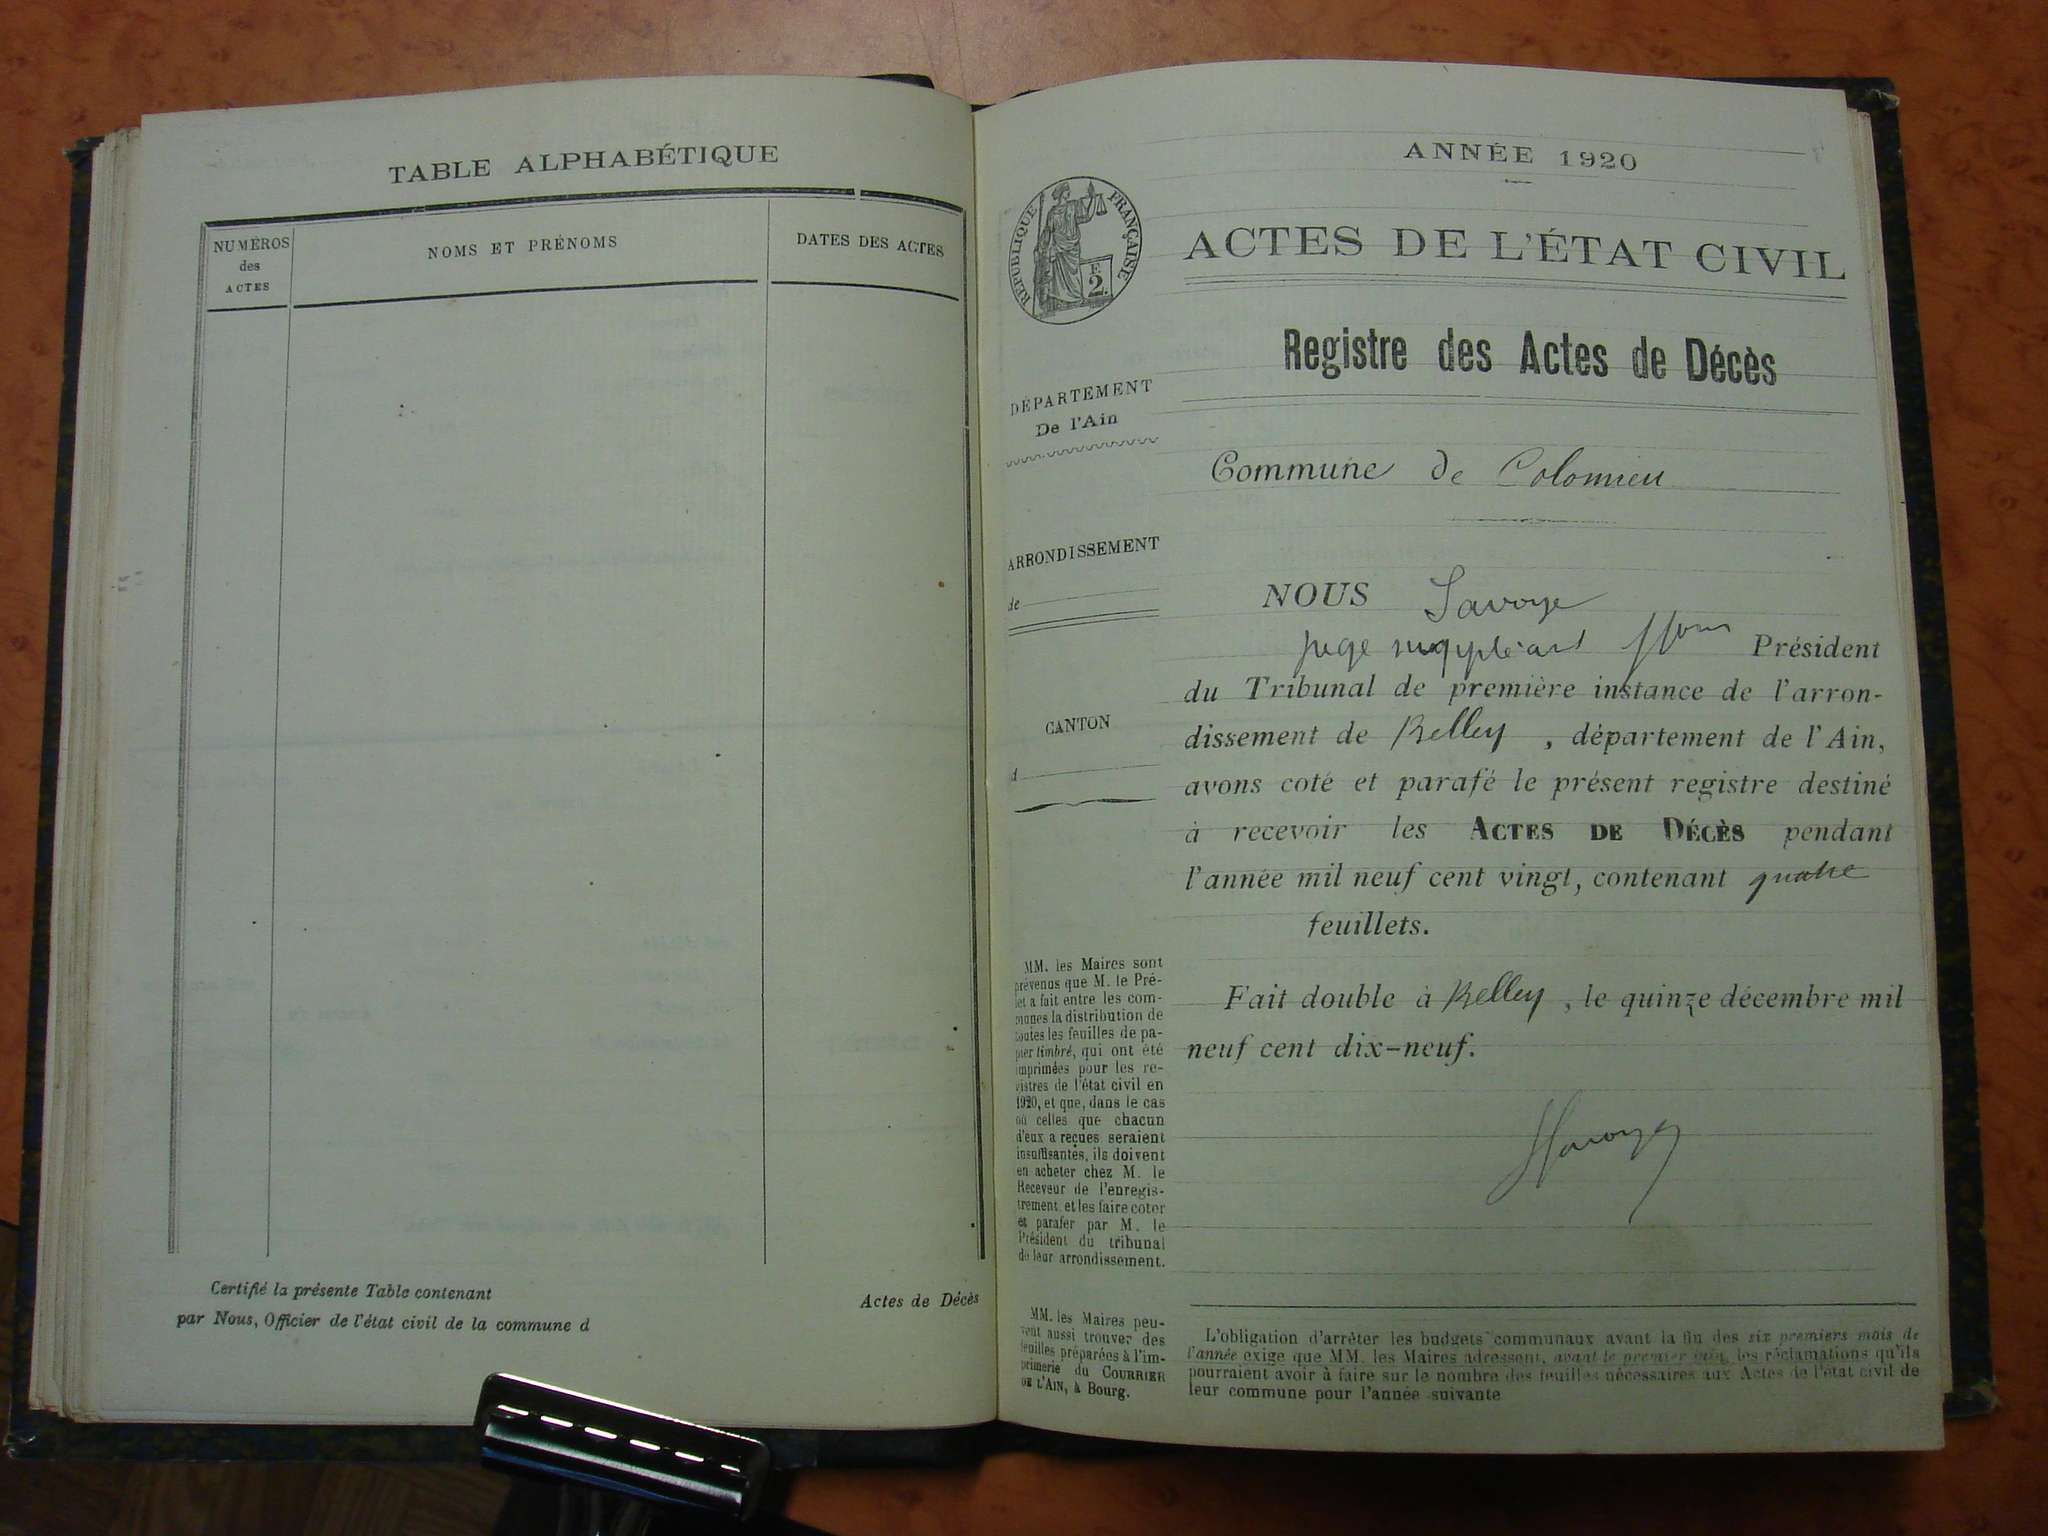 TABLE ALPHABÉTIQUE
NUMÉROS
des
ACTES
NOMS ET PRÉNOMS
DATES DES ACTES
Certifié la présente Table contenant
Actes de Décès
par Nous, Officier de l'état civil de la commune d
ANNÉE 1920
RÉPUBLIQUE FRANÇAISE
F.
2.
ACTES DE L'ÉTAT CIVIL
Registre des Actes de Décès
DÉPARTEMENT
De l'Ain
Commune de Colomieu
ARRONDISSEMENT
de
CANTON
d
NOUS Savoye
juge suppléant Président
du Tribunal de première instance de l'arron-
dissement de Belley, département de l'Ain,
avons coté et parafé le présent registre destiné
à recevoir les ACTES DE DÉCÈS pendant
l'année mil neuf cent vingt, contenant quatre
feuillets.
Fait double à Belley, le quinze décembre mil
neuf cent dix-neuf.
Savoye
MM. les Maires sont
prévenus que M. le Pré-
fet a fait entre les com-
munes la distribution de
toutes les feuilles de pa-
pier timbré, qui ont été
imprimées pour les re-
gistres de l'état civil en
1920, et que, dans le cas
où celles que chacun
d'eux a reçues seraient
insuffisantes, ils doivent
en acheter chez M. le
Receveur de l'enregis-
trement, et les faire coter
et parafer par M. le
Président du tribunal
de leur arrondissement.
MM. les Maires peu-
vent aussi trouver des
feuilles préparées à l'im-
primerie du COURRIER
DE L'AIN, à Bourg.
L'obligation d'arrêter les budgets communaux avant la fin des six premiers mois de
l'année exige que MM. les Maires adressent, avant le premier juin, les réclamations qu'ils
pourraient avoir à faire sur le nombre des feuilles nécessaires aux Actes de l'état civil de
leur commune pour l'année suivante